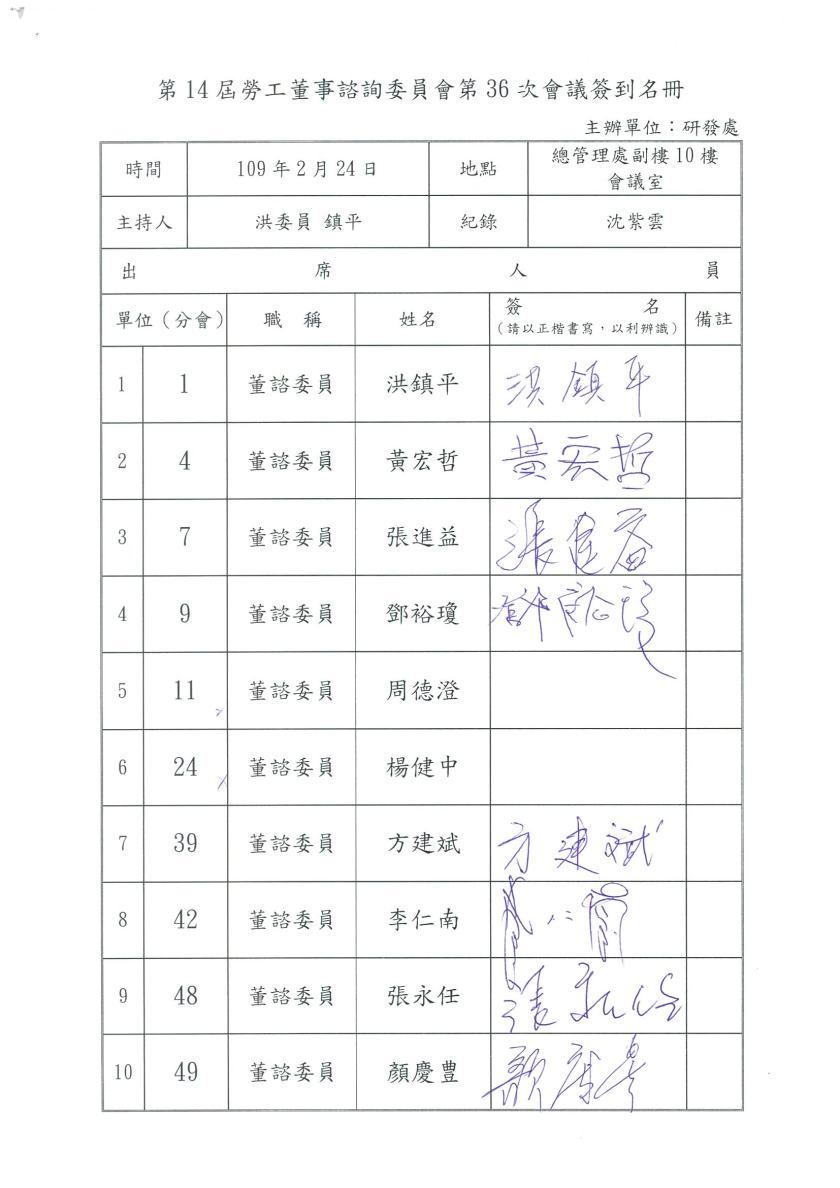 第14屆勞工董事諮詢委員會第36次會議簽到名冊
主辦單位：研發處
時間 109年2月24日 地點 總管理處副樓10樓
會議室
主持人 洪委員 鎮平 紀錄 沈紫雲
出 席 人 員
單位(分會) 職 稱 姓名 簽 名 備註
(請以正楷書寫，以利辨識)
1 1 董諮委員 洪鎮平 洪鎮平
2 4 董諮委員 黃宏哲 黃宏哲
3 7 董諮委員 張進益 張進益
4 9 董諮委員 鄧裕瓊 鄧裕瓊
5 11 董諮委員 周德澄
6 24 董諮委員 楊健中
7 39 董諮委員 方建斌 方建斌
8 42 董諮委員 李仁南 李仁南
9 48 董諮委員 張永任 張永任
10 49 董諮委員 顏慶豊 顏慶豊